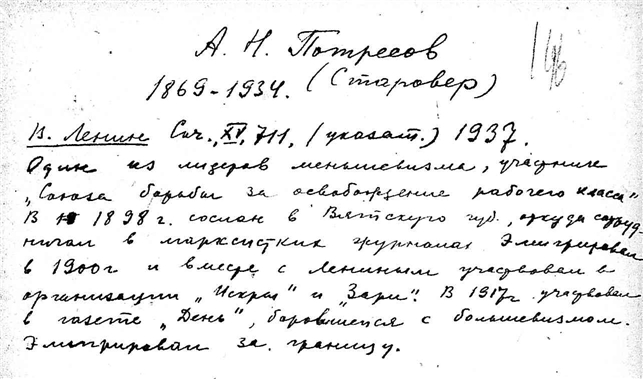 А. Н. Потресов
1869-1934. (Старовер)
146
В. Ленин Соч., XV, 711, (указат.) 1937.
Один из лидеров меньшевизма, участник
„Союза борьбы за освобождение рабочего класса"
В 1898 г. сослан в Вятскую губ., откуда сотруд-
ничал в марксистких журналах Эмигрировал
в 1900г и вместе с Лениным участвовал в
организации „Искры" и „Зари". В 1917г. участвовал
в газете „День", боровшейся с большевизмом.
Эмигрировал за границу.